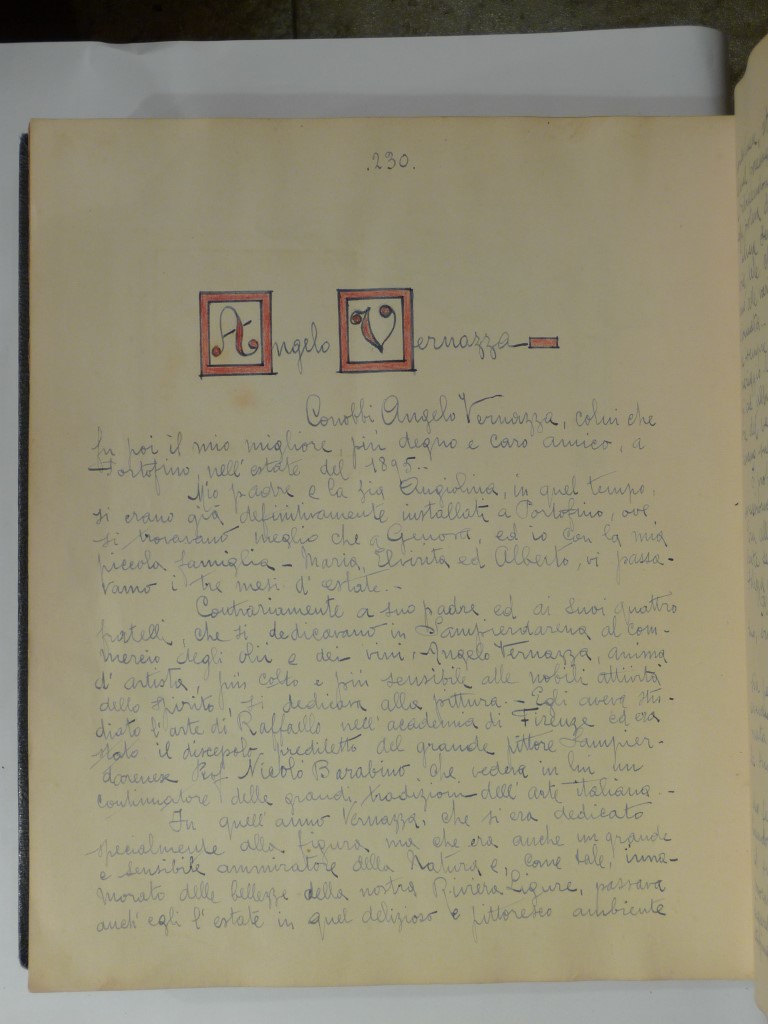 .230.
Angelo Vernazza
Conobbi Angelo Vernazza, colui che
fu poi il mio migliore, più degno e caro amico, a
Portofino, nell'estate del 1895..
Mio padre e la zia Angiolina, in quel tempo,
si erano già definitivamente installati a Portofino, ove
si trovavano meglio che a Genova, ed io con la mia
piccola famiglia - Maria, Elvirita ed Alberto, vi passa-
vamo i tre mesi d'estate. -
Contrariamente a suo padre ed ai suoi quattro
fratelli, che si dedicavano in Sampierdarena al com-
mercio degli olii e dei vini, - Angelo Vernazza, anima
d'artista, più colto e più sensibile alle nobili attività
dello spirito, si dedicava alla pittura. - Egli aveva stu-
diato l'arte di Raffaello nell'academia di Firenze ed era
stato il discepolo prediletto del grande pittore Sampier-
darenese Prof. Nicolò Barabino che vedeva in lui un
continuatore delle grandi tradizioni dell'arte italiana. -
In quell'anno Vernazza, che si era dedicato
specialmente alla figura ma che era anche un grande
e sensibile ammiratore della Natura e, come tale, inna-
morato delle bellezze della nostra Riviera Ligure, passava
anch'egli l'estate in quel delizioso e pittoresco ambiente